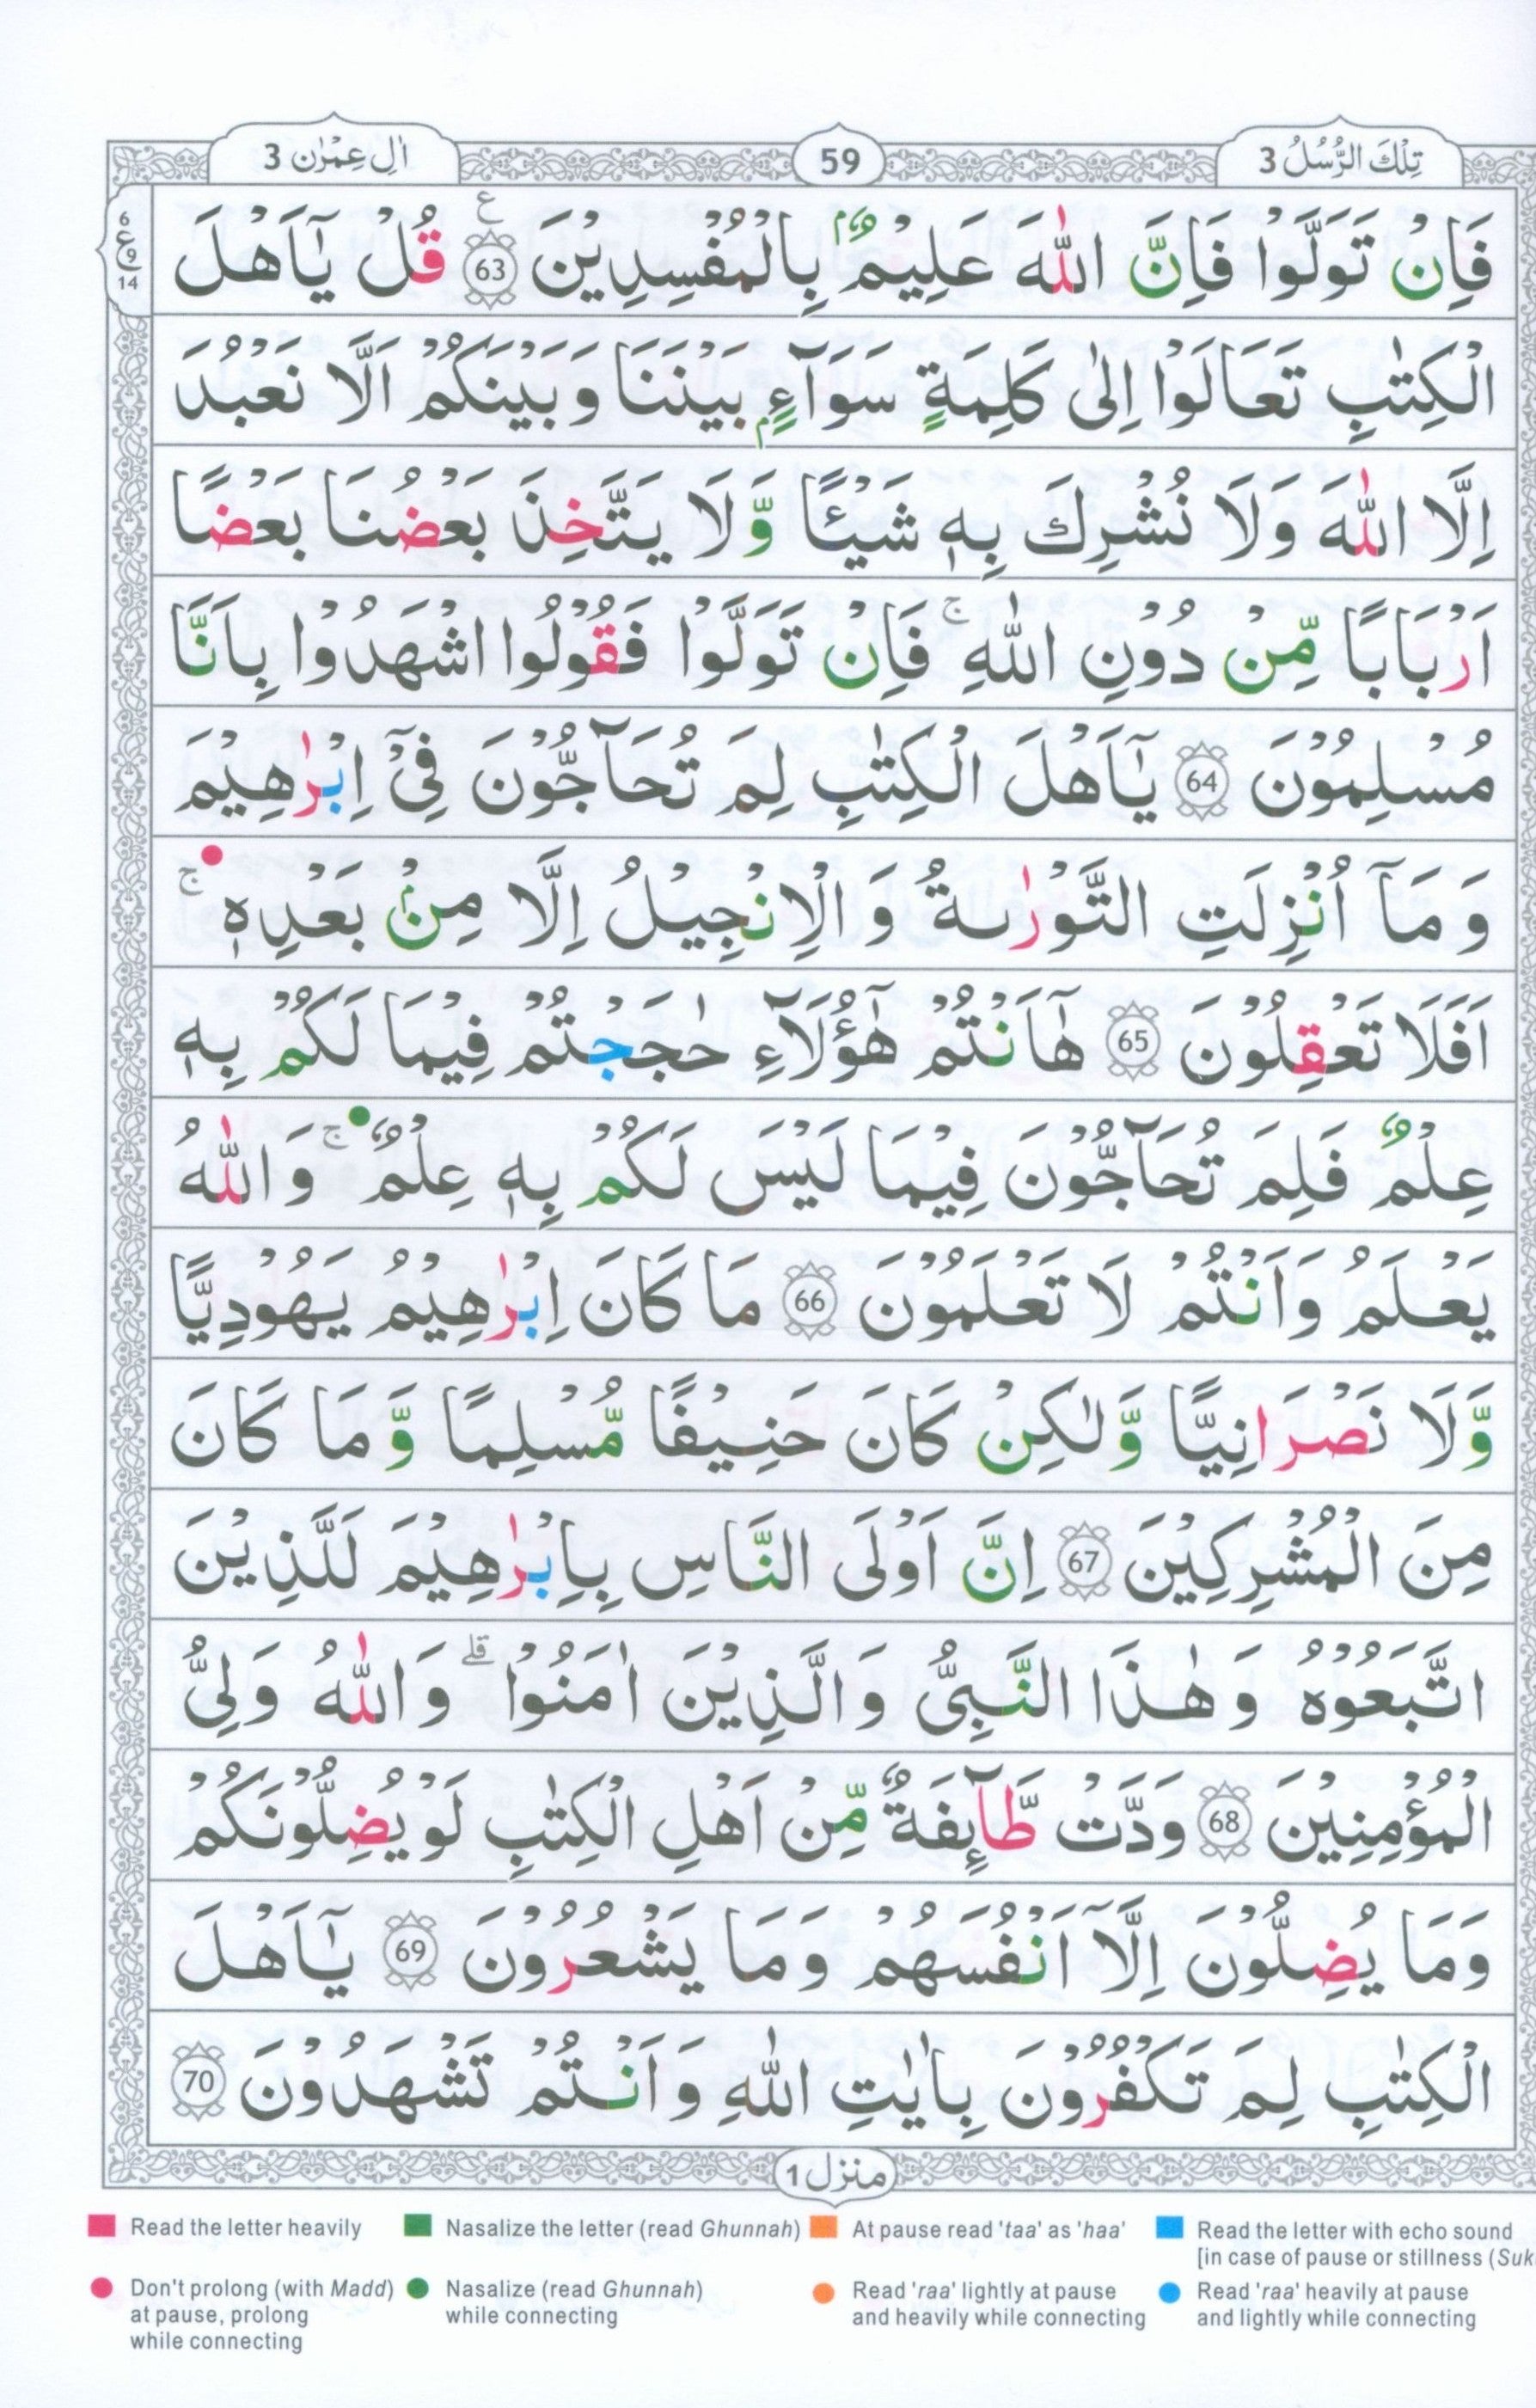 تِلْكَ الرُّسُلُ 3
59
اٰلِ عِمْرٰن 3
ع
6
ع
9
14
فَاِنْ تَوَلَّوْا فَاِنَّ اللّٰهَ عَلِيْمٌۢ بِالْمُفْسِدِيْنَ 63 قُلْ يٰۤاَهْلَ
الْكِتٰبِ تَعَالَوْا اِلٰى كَلِمَةٍ سَوَآءٍۭ بَيْنَنَا وَبَيْنَكُمْ اَلَّا نَعْبُدَ
اِلَّا اللّٰهَ وَلَا نُشْرِكَ بِهٖ شَيْـًٔا وَّلَا يَتَّخِذَ بَعْضُنَا بَعْضًا
اَرْبَابًا مِّنْ دُوْنِ اللّٰهِ ۚ فَاِنْ تَوَلَّوْا فَقُوْلُوا اشْهَدُوْا بِاَنَّا
مُسْلِمُوْنَ 64 يٰۤاَهْلَ الْكِتٰبِ لِمَ تُحَآجُّوْنَ فِيْۤ اِبْرٰهِيْمَ
وَمَاۤ اُنْزِلَتِ التَّوْرٰىةُ وَالْاِنْجِيْلُ اِلَّا مِنْۢ بَعْدِهٖ ۚ
اَفَلَا تَعْقِلُوْنَ 65 هٰۤاَنْتُمْ هٰۤؤُلَآءِ حٰجَجْتُمْ فِيْمَا لَكُمْ بِهٖ
عِلْمٌ فَلِمَ تُحَآجُّوْنَ فِيْمَا لَيْسَ لَكُمْ بِهٖ عِلْمٌ ۚ وَاللّٰهُ
يَعْلَمُ وَاَنْتُمْ لَا تَعْلَمُوْنَ 66 مَا كَانَ اِبْرٰهِيْمُ يَهُوْدِيًّا
وَّلَا نَصْرَانِيًّا وَّلٰكِنْ كَانَ حَنِيْفًا مُّسْلِمًا وَّمَا كَانَ
مِنَ الْمُشْرِكِيْنَ 67 اِنَّ اَوْلَى النَّاسِ بِاِبْرٰهِيْمَ لَلَّذِيْنَ
اتَّبَعُوْهُ وَهٰذَا النَّبِيُّ وَالَّذِيْنَ اٰمَنُوْا ۗ وَاللّٰهُ وَلِيُّ
الْمُؤْمِنِيْنَ 68 وَدَّتْ طَّآىِٕفَةٌ مِّنْ اَهْلِ الْكِتٰبِ لَوْ يُضِلُّوْنَكُمْ
وَمَا يُضِلُّوْنَ اِلَّاۤ اَنْفُسَهُمْ وَمَا يَشْعُرُوْنَ 69 يٰۤاَهْلَ
الْكِتٰبِ لِمَ تَكْفُرُوْنَ بِاٰيٰتِ اللّٰهِ وَاَنْتُمْ تَشْهَدُوْنَ 70
منزل 1
Read the letter heavily
Nasalize the letter (read Ghunnah)
At pause read 'taa' as 'haa'
Read the letter with echo sound
[in case of pause or stillness (Suk
Don't prolong (with Madd)
at pause, prolong
while connecting
Nasalize (read Ghunnah)
while connecting
Read 'raa' lightly at pause
and heavily while connecting
Read 'raa' heavily at pause
and lightly while connecting